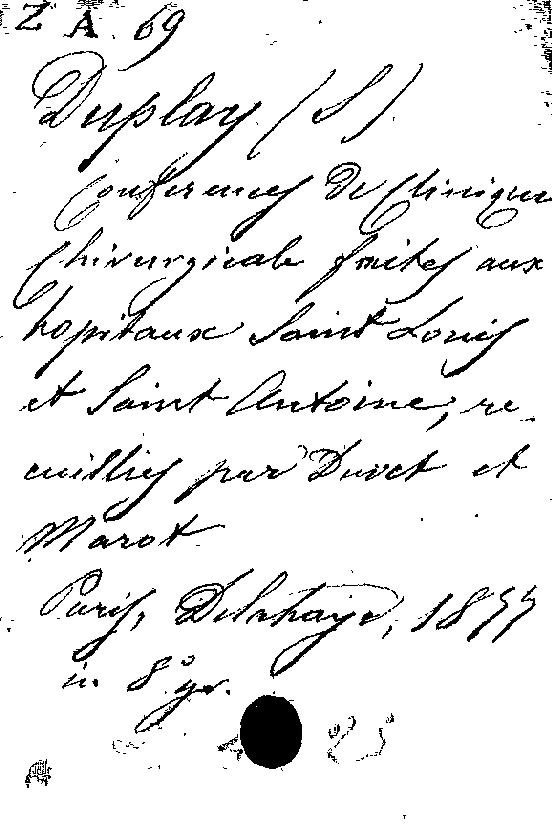 Z A 69
Duplay (S)
Conferences de Clinique
Chirurgicale faites aux
hopitaux Saint Louis
et Saint Antoine, re
cueillies par Duvet et
Marot
Paris, Delahaye, 1877
in 8° gr.
23